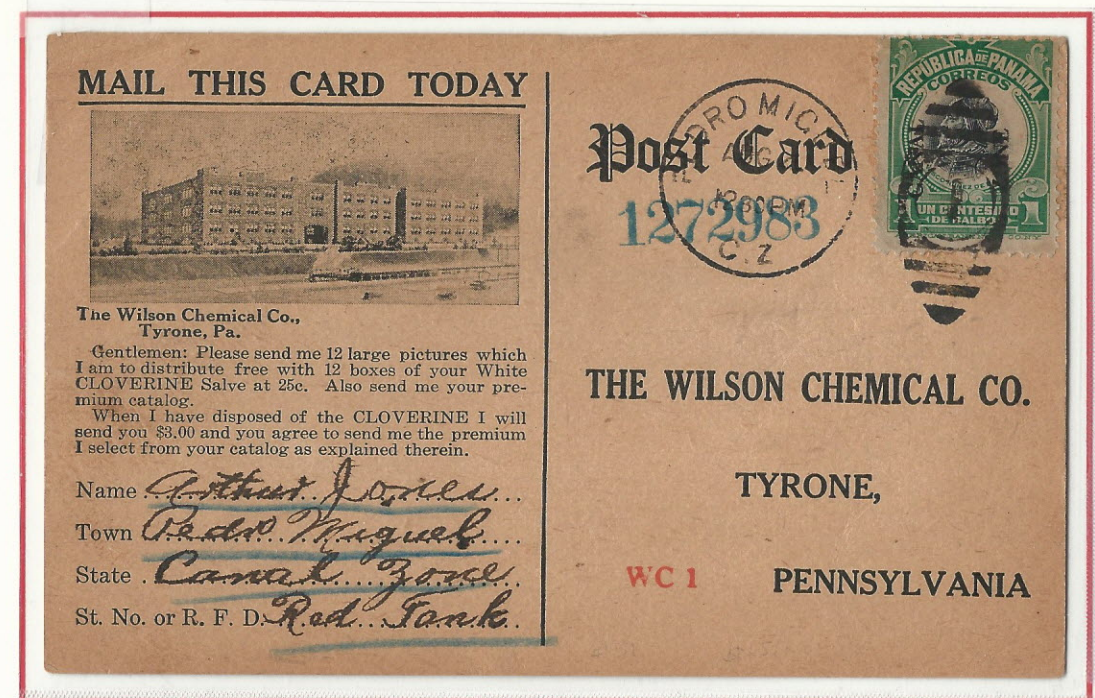 MAIL THIS CARD TODAY
The Wilson Chemical Co.,
Tyrone, Pa.
Gentlemen: Please send me 12 large pictures which
I am to distribute free with 12 boxes of your White
CLOVERINE Salve at 25c. Also send me your pre-
mium catalog.
When I have disposed of the CLOVERINE I will
send you $3.00 and you agree to send me the premium
I select from your catalog as explained therein.
Name Arthur Jones
Town Pedro Miguel
State Canal Zone
St. No. or R. F. D. Red Tank
Post Card
1272983
AUG
12 30 PM
C. Z
REPUBLICA DE PANAMA
CORREOS
UN CENTESIMO
DE BALBOA
1
THE WILSON CHEMICAL CO.
TYRONE,
WC 1 PENNSYLVANIA